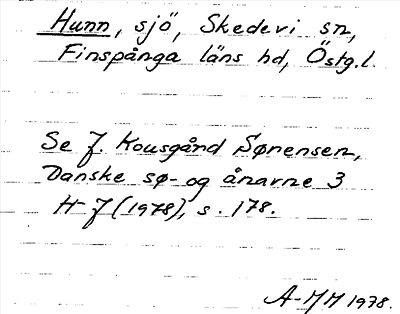 Hunn, sjö, Skedevi sn,
Finspånga läns hd, Östg.l.
Se J. Kousgård Sørensen,
Danske sø- og ånavne 3
H-J (1978), s. 178.
A-MM 1978.